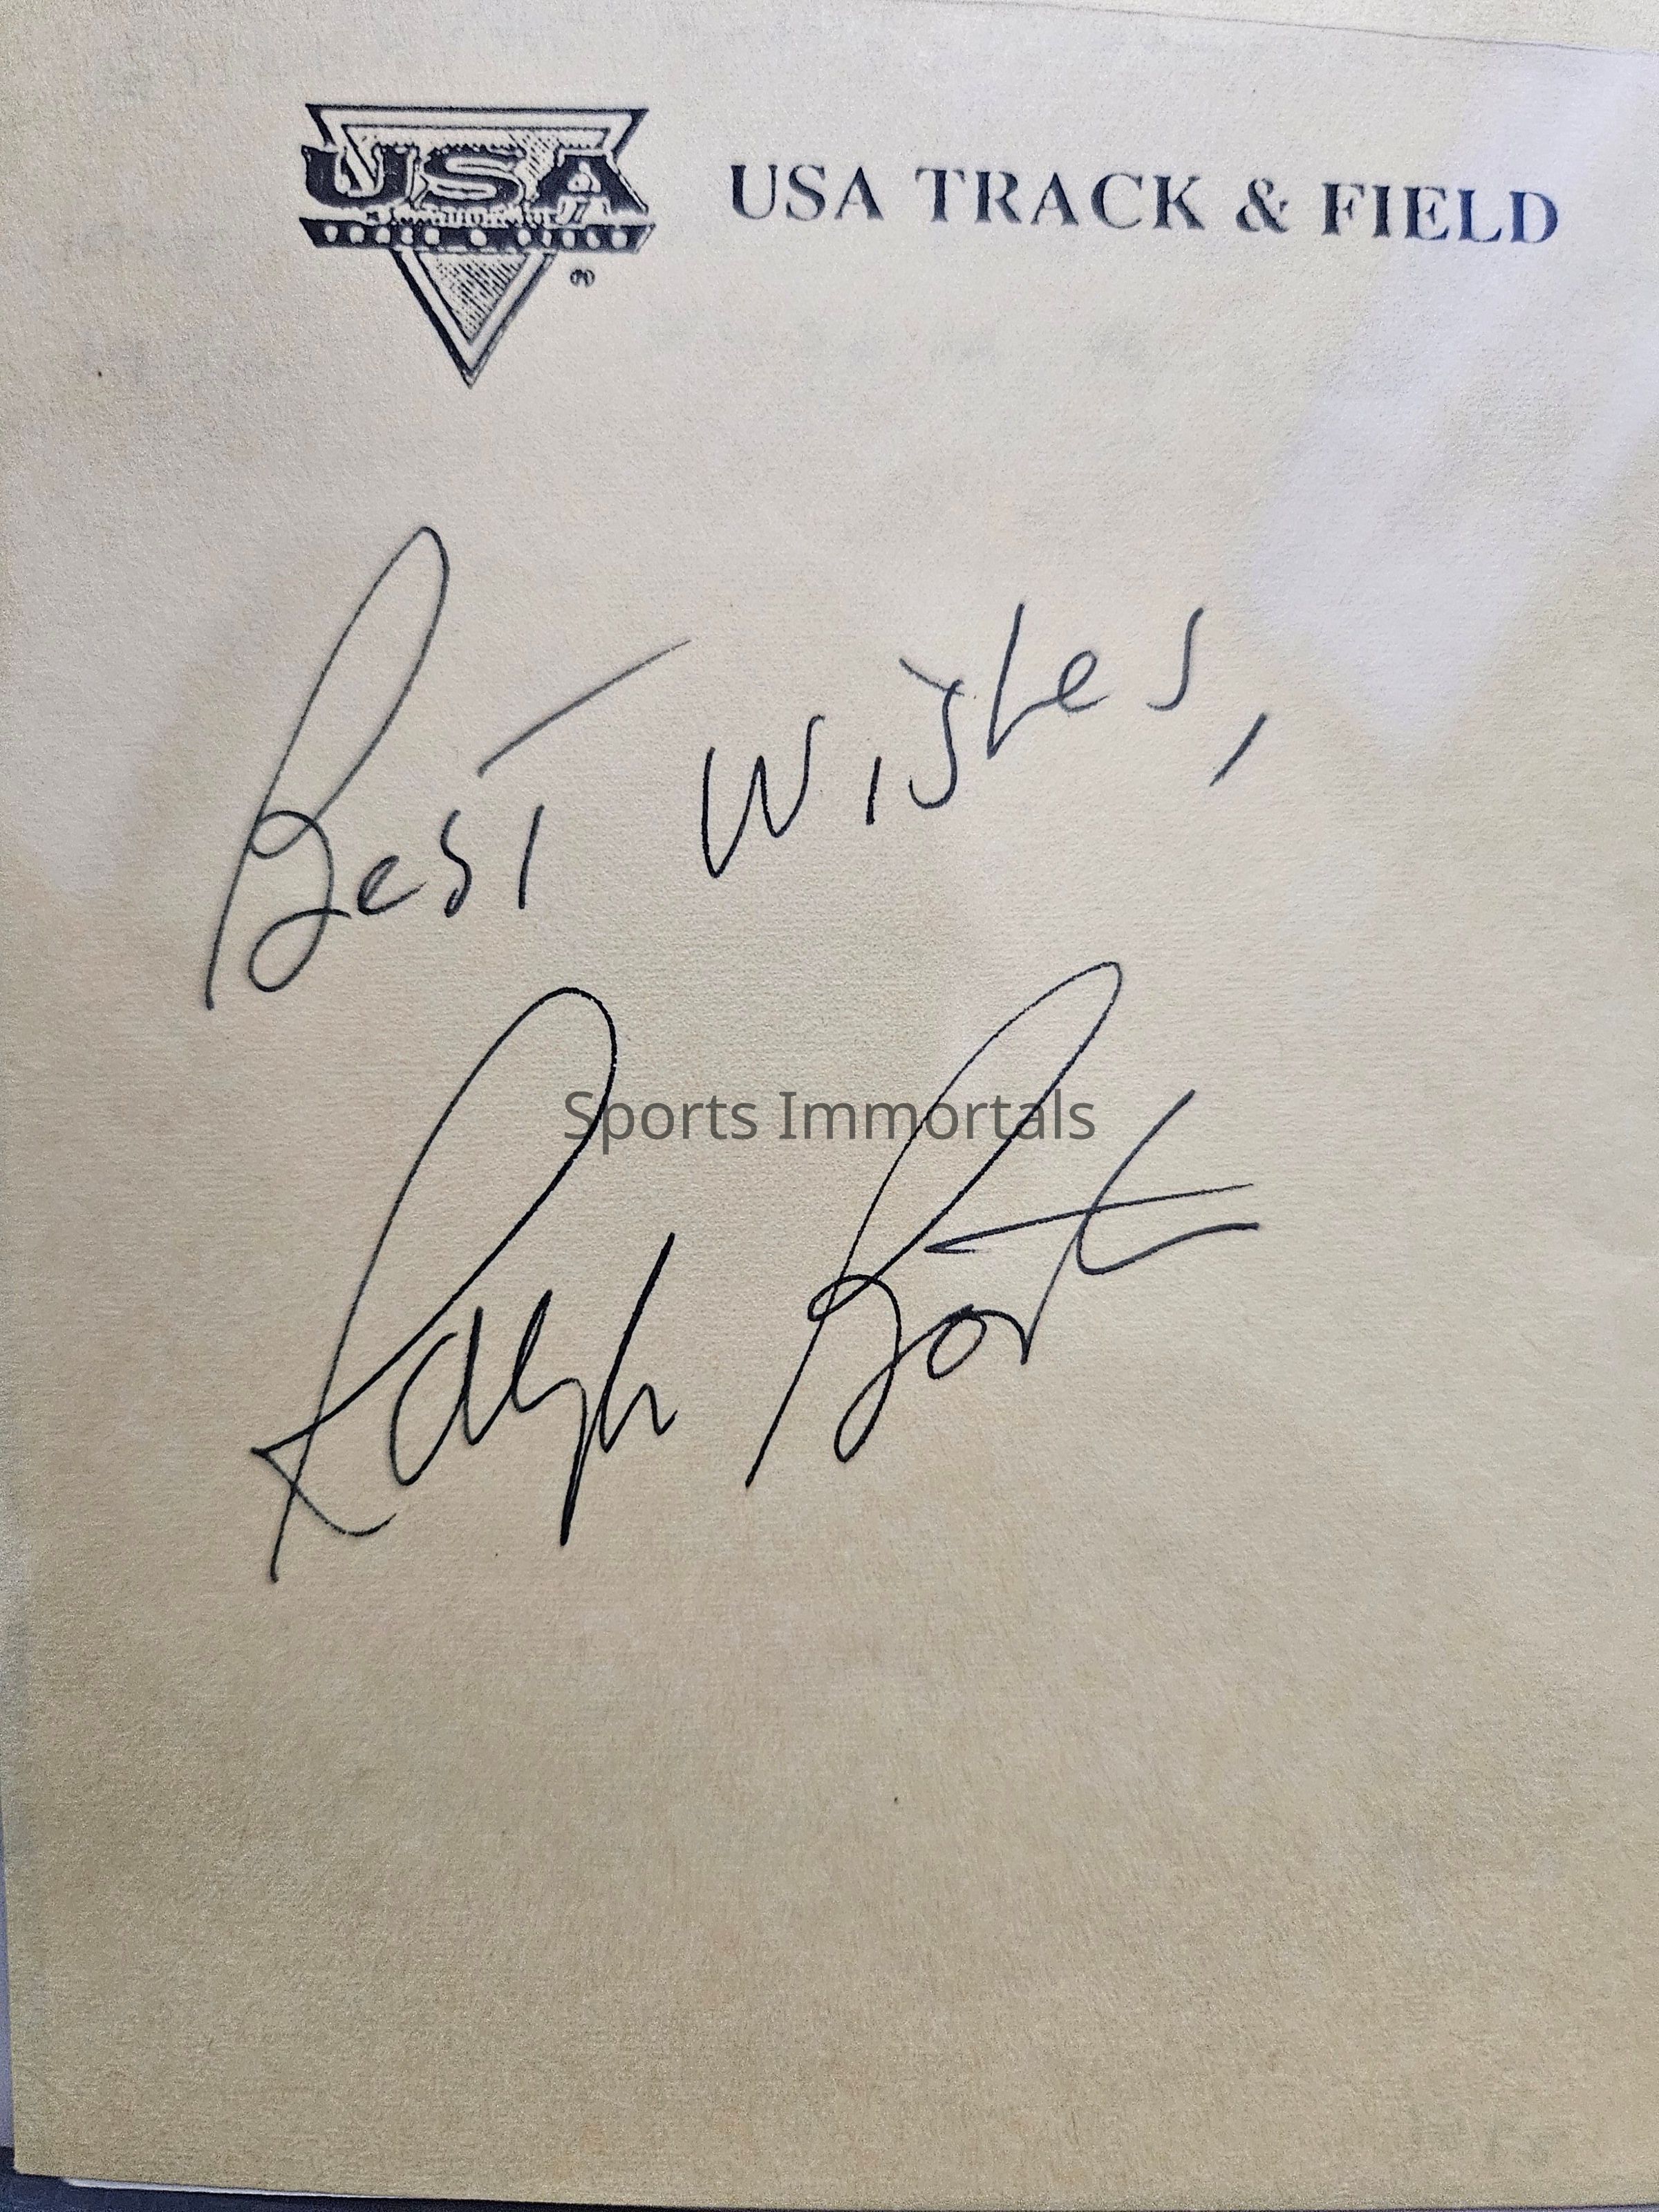 USA
USA TRACK & FIELD
Best Wishes,
Sports Immortals
Ralph Boston